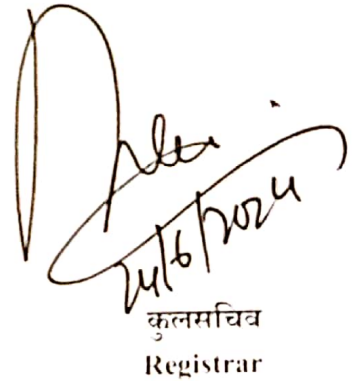 24/6/2024
कुलसचिव
Registrar